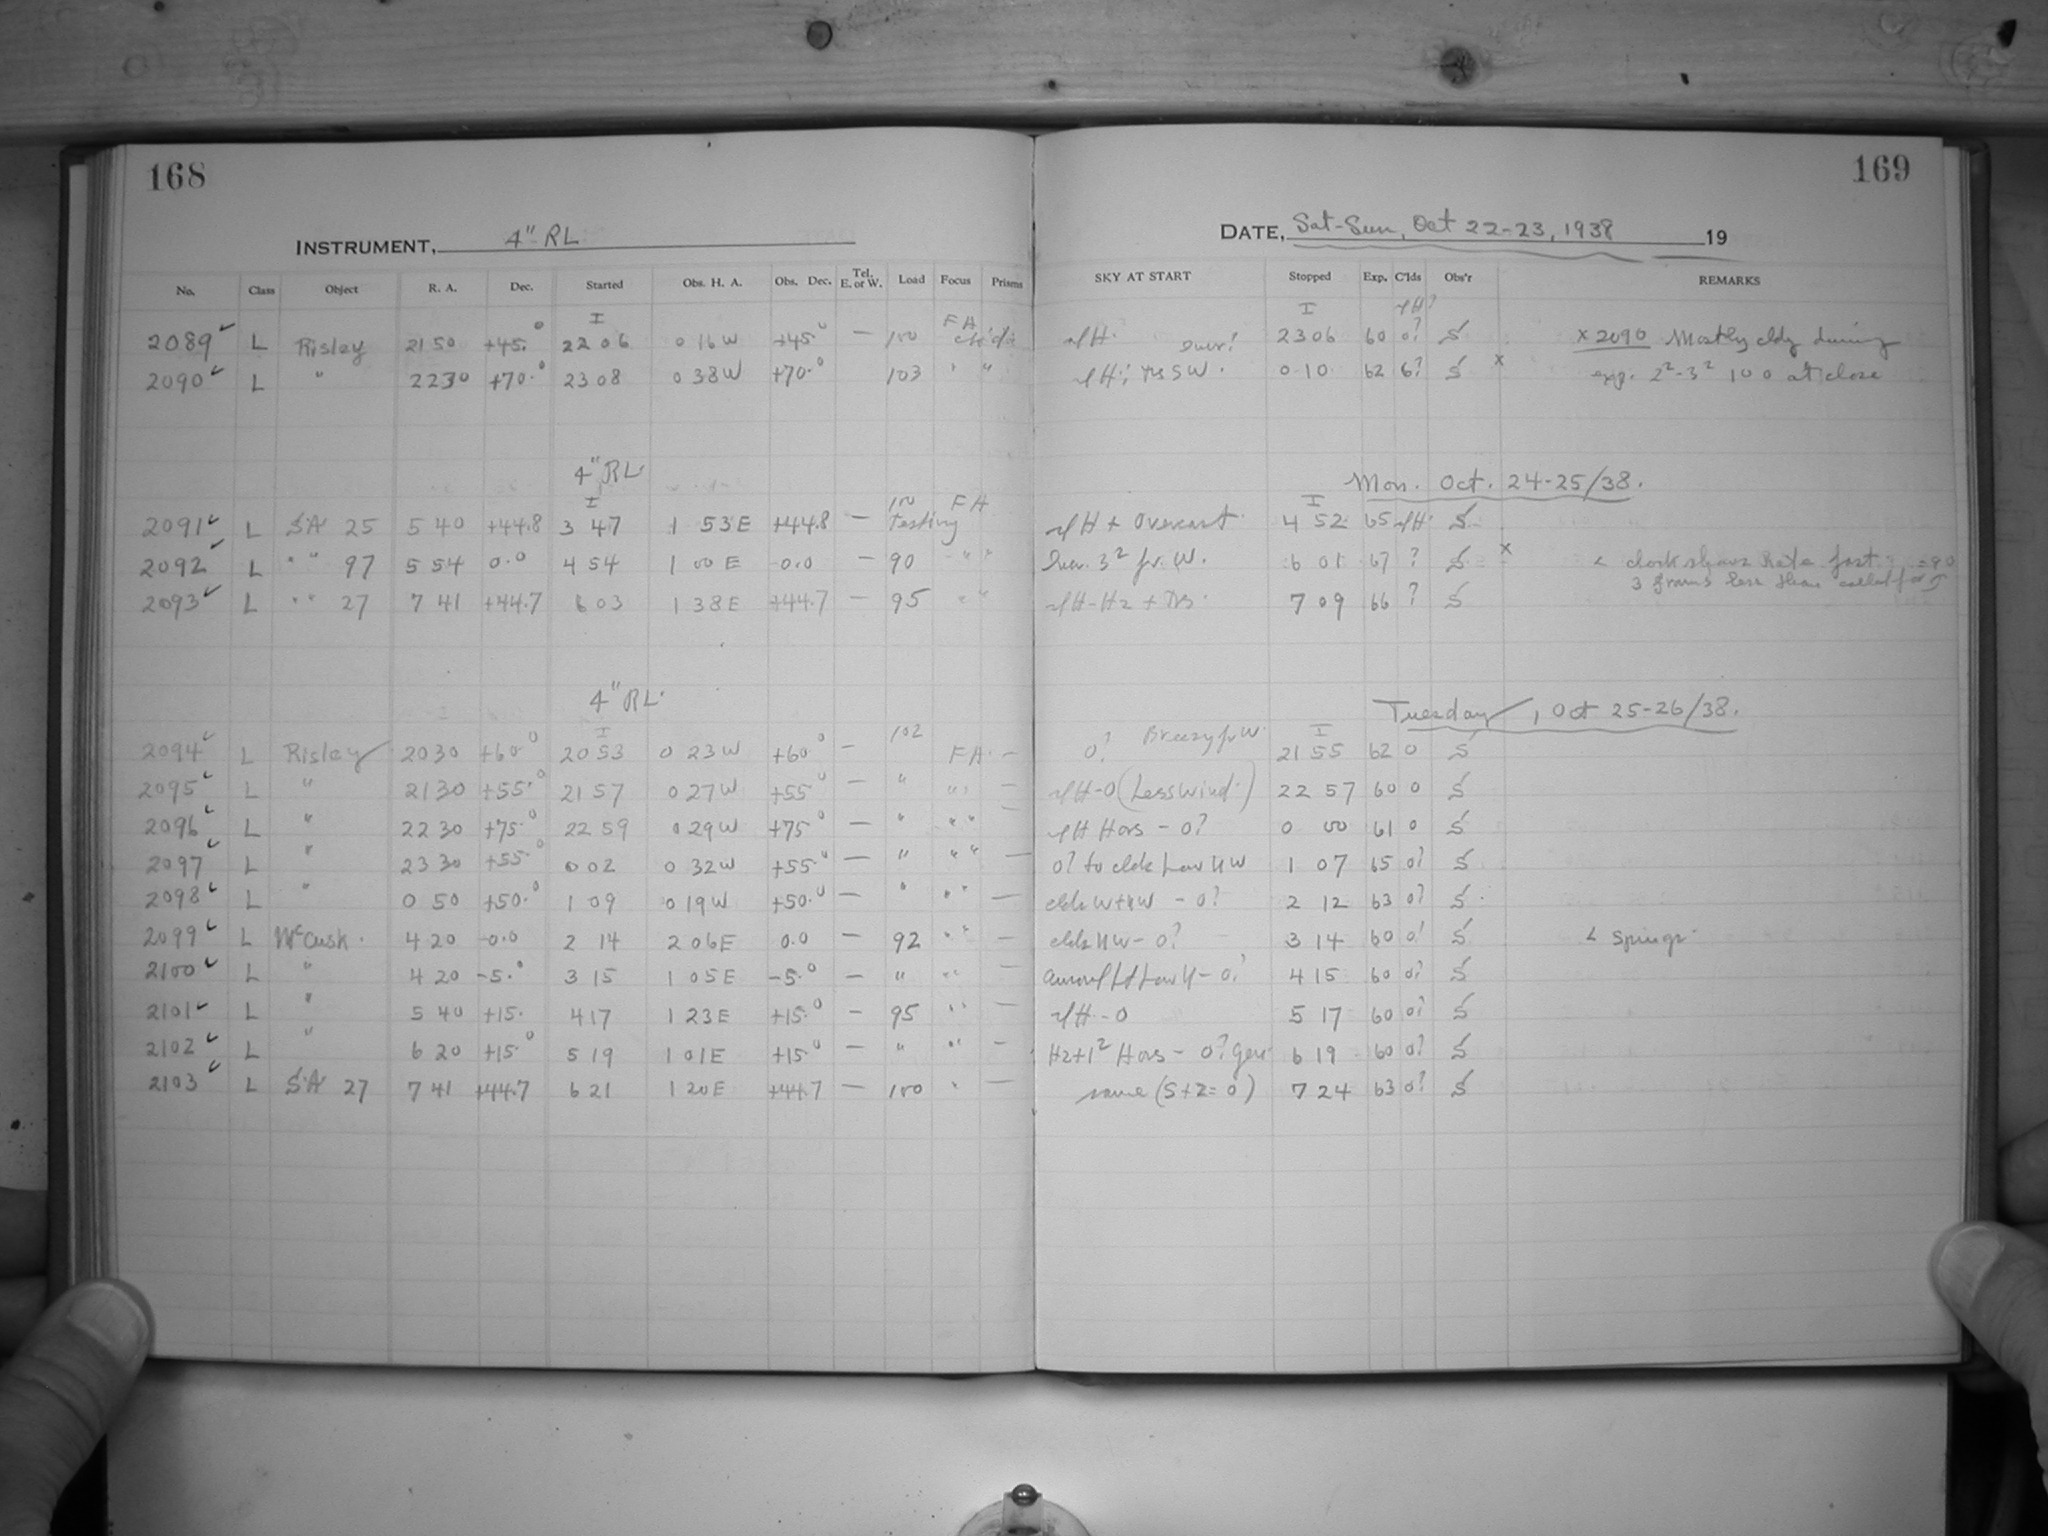 168
169
INSTRUMENT, 4" RL
DATE, Sat-Sun, Oct 22-23, 1938 19
No. Class Object R. A. Dec. Started Obs. H. A. Obs. Dec. Tel. E. or W. Load Focus Prisms SKY AT START Stopped Exp. C'lds Obs'r REMARKS
I FA I
2089 L Risley 21 50 +45.° 22 06 0 16 W +45° — 100 23 06 60 0? S x 2090 Mostly cldy during
2090 L " 22 30 +70.° 23 08 0 38 W +70.° 103 " " 0 10 62 6? S x exp. 2²-3² 100 at close
4" RL Mon. Oct. 24-25/38.
I 100 FA I
2091 L SA 25 5 40 +44.8 3 47 1 53 E +44.8 — Testing 4 52 65 S
2092 L " " 97 5 54 0.0 4 54 1 00 E 0.0 — 90 " " 6 01 67 ? S x clock shows Rate fast
3 grams less than called for
2093 L " " 27 7 41 +44.7 6 03 1 38 E +44.7 — 95 " " 7 09 66 ? S
4" RL Tuesday, Oct 25-26/38.
I 102 Breezy fr W. I
2094 L Risley 20 30 +60° 20 53 0 23 W +60° — FA — 0? 21 55 62 0 S
2095 L " 21 30 +55.° 21 57 0 27 W +55° — " " " — (Less Wind) 22 57 60 0 S
2096 L " 22 30 +75.° 22 59 0 29 W +75° — " " " — Hors - 0? 0 00 61 0 S
2097 L " 23 30 +55.° 0 02 0 32 W +55.° — " " " — 0? to clds Low NW 1 07 65 0? S
2098 L " 0 50 +50.° 1 09 0 19 W +50.° — " " " — clds W+NW - 0? 2 12 63 0? S
2099 L McCusk. 4 20 -0.0 2 14 2 06 E 0.0 — 92 " " — clds NW - 0? 3 14 60 0? S
2100 L " 4 20 -5.° 3 15 1 05 E -5.° — " " " — 4 15 60 0? S
2101 L " 5 40 +15. 4 17 1 23 E +15.° — 95 " " — 5 17 60 0? S
2102 L " 6 20 +15.° 5 19 1 01 E +15° — " " " — Hz+1² Hors - 0? Gen 6 19 60 0? S
2103 L SA 27 7 41 +44.7 6 21 1 20 E +44.7 — 100 " — same (S+Z=0) 7 24 63 0? S